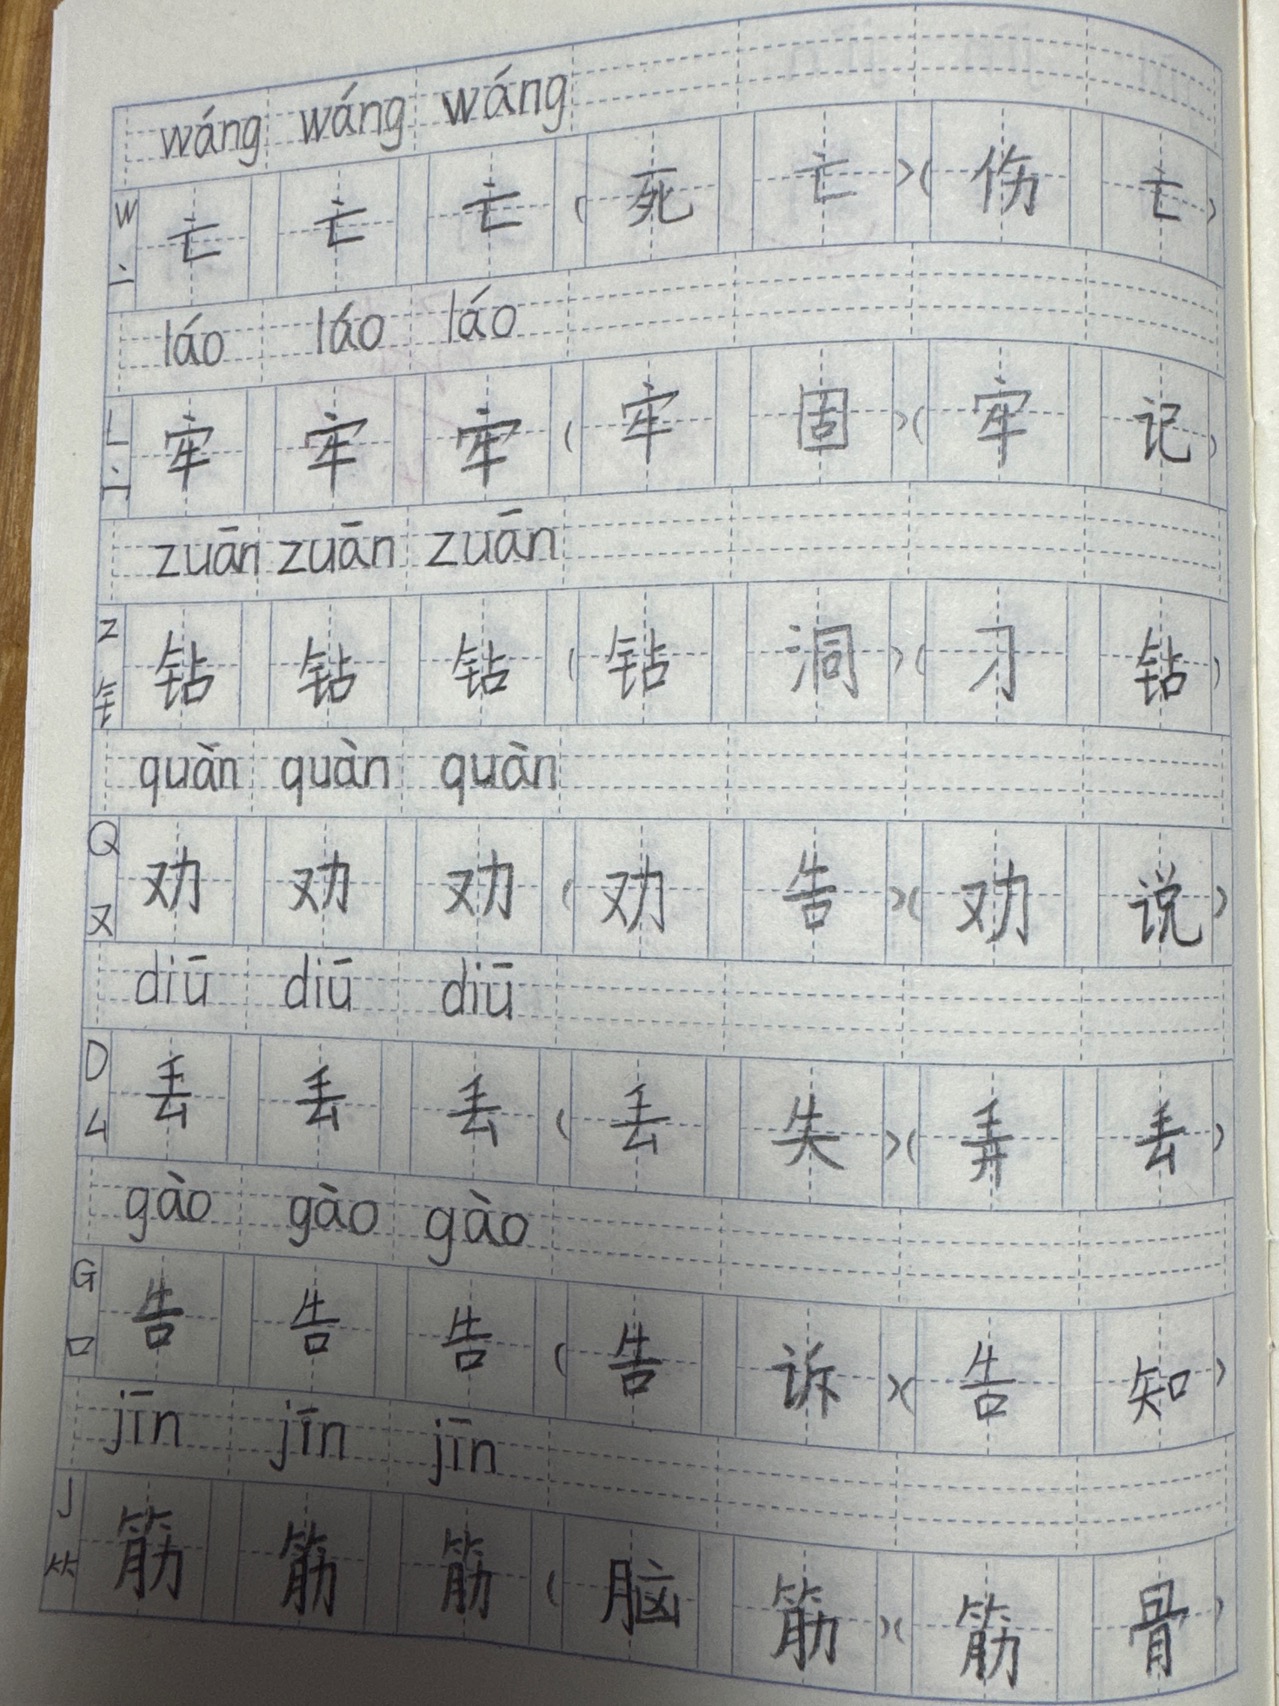 wáng wáng wáng
W 亠 亡 亡 亡 (死亡)(伤亡)
láo láo láo
L 宀 牢 牢 牢 (牢固)(牢记)
zuān zuān zuān
Z 钅 钻 钻 钻 (钻洞)(刁钻)
quàn quàn quàn
Q 又 劝 劝 劝 (劝告)(劝说)
diū diū diū
D 厶 丢 丢 丢 (丢失)(弄丢)
gào gào gào
G 口 告 告 告 (告诉)(告知)
jīn jīn jīn
J ⺮ 筋 筋 筋 (脑筋)(筋骨)